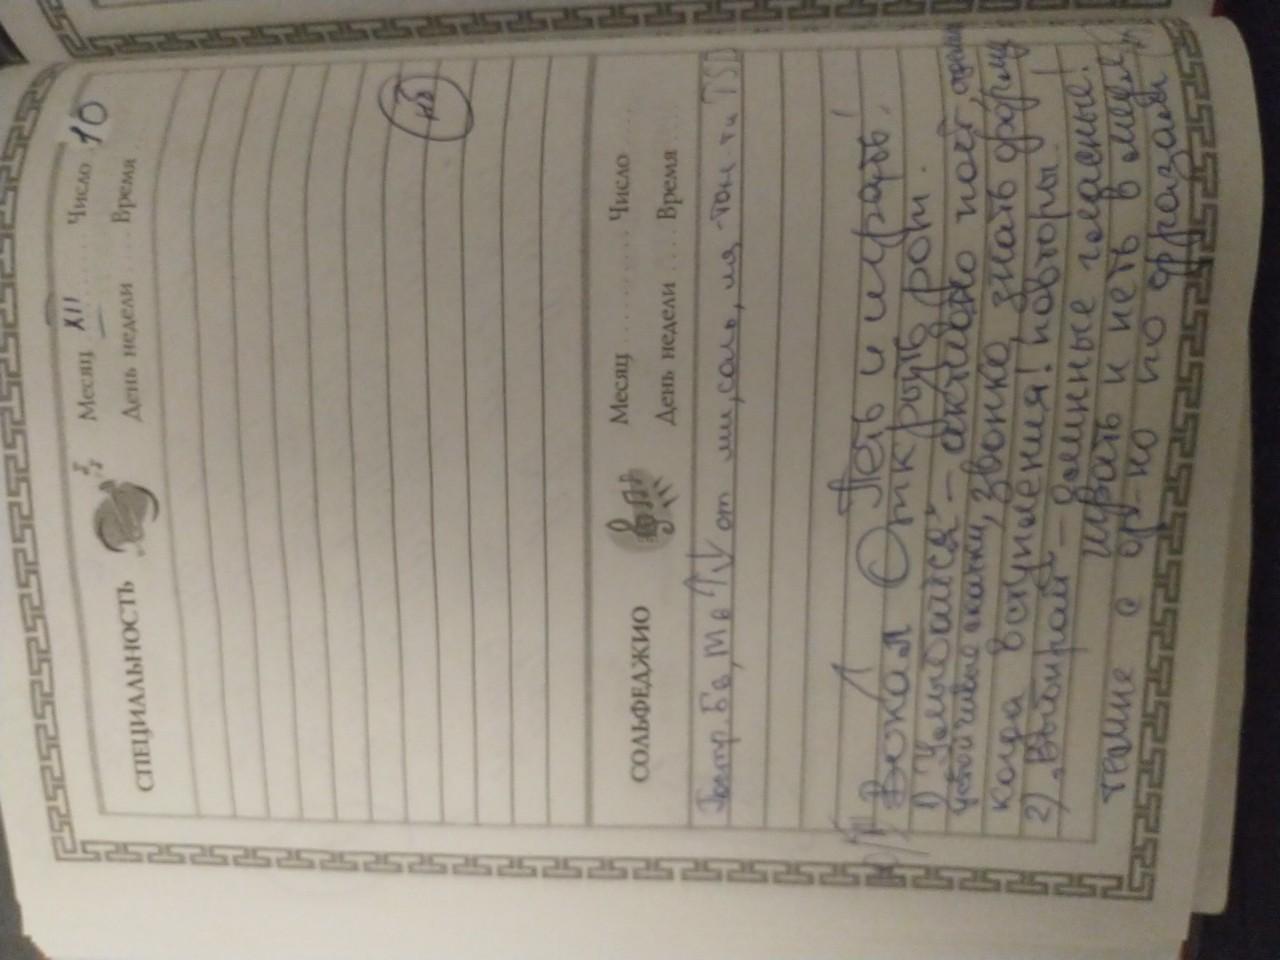 СПЕЦИАЛЬНОСТЬ Месяц XII Число 10
День недели Время
нб
СОЛЬФЕДЖИО Месяц Число
День недели Время
Постр. Б6, М6 ↑↓ от ми, соль, ля тон
Вокал Петь и играть!
Открыть рот.
1) "Улыбайся" – активно поёт,
звонко, знать форму
когда вступления! повторы.
2) "Выбирай" – длинные гласные!
играть и петь в медл.
темпе с ф-но по фразам